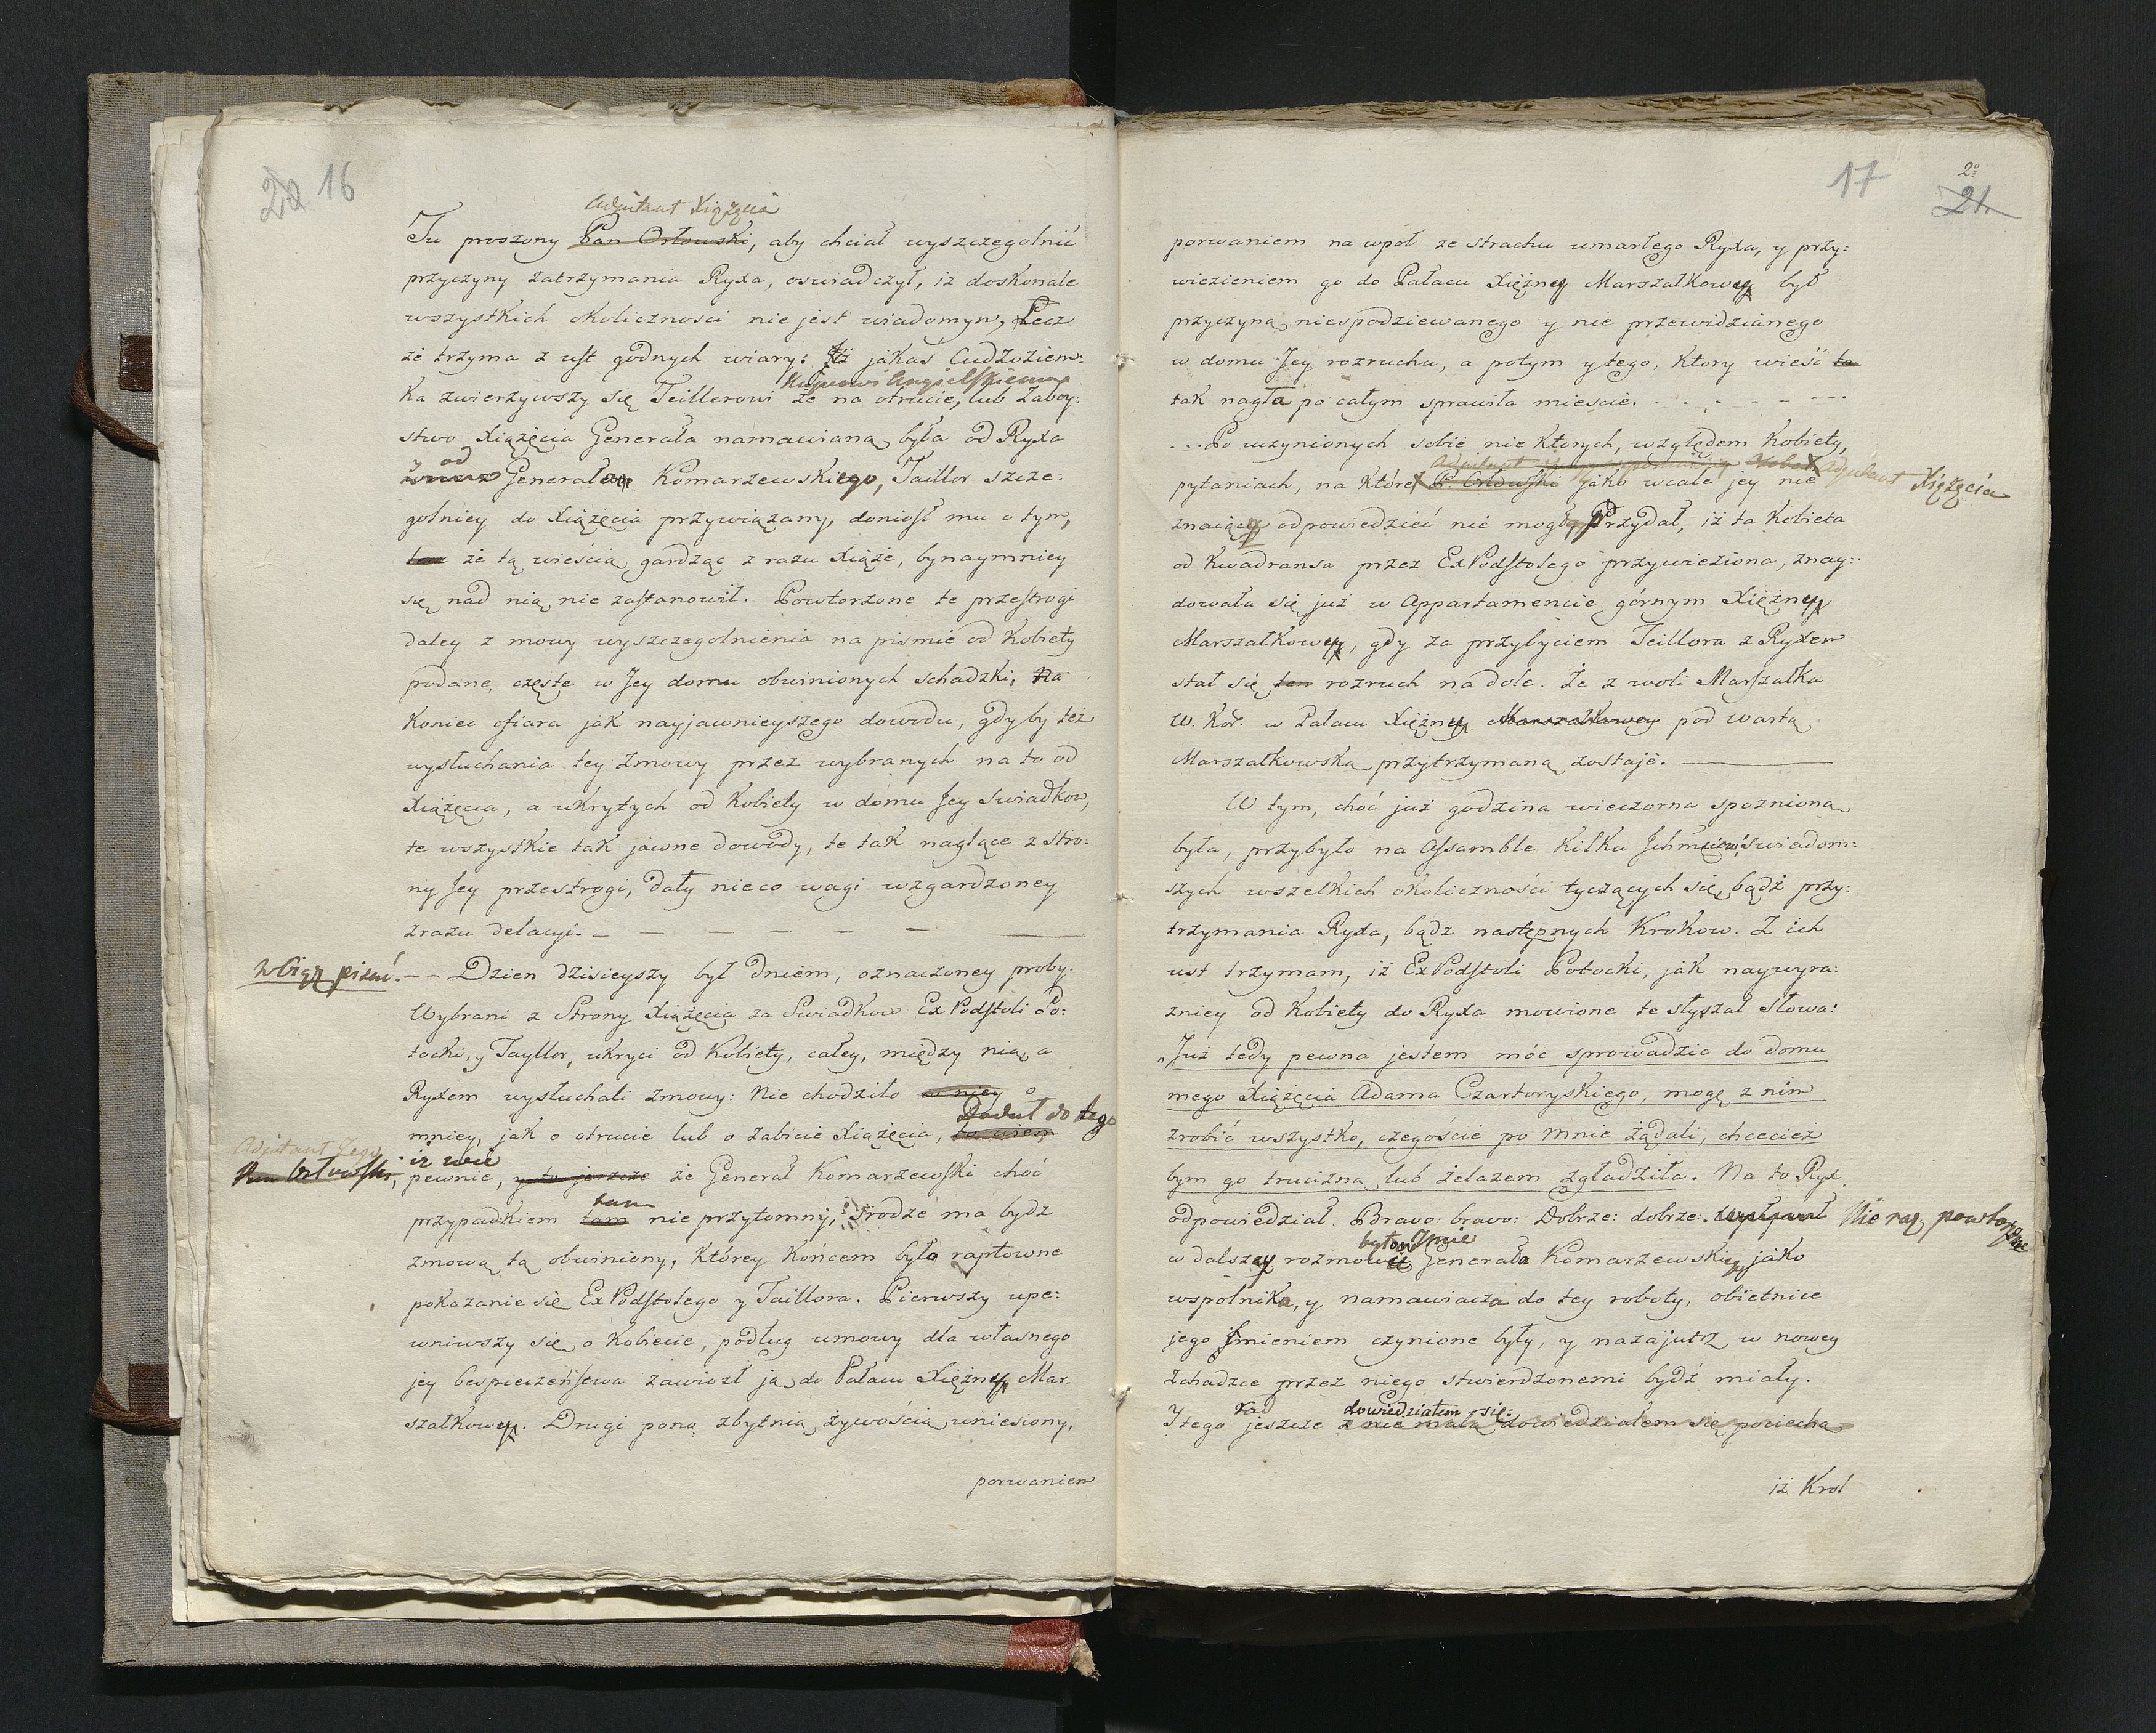 20 16
Adjutant Xiążęcia
Tu proszony Pan Orłowski, aby chciał wyszczegolnić
przyczyny zatrzymania Ryxa, oswiadczył, iż doskonale
wszystkich okolicznosci nie jest wiadomym, Lecz
że trzyma z ust godnych wiary: Iż jakas Cudzoziem:
Kupcowi Angielskiemu
ka zwierzywszy się Teillerowi że na otrucie, lub Zaboy:
stwo Xiążęcia Generała namawianą była od Ryxa
y od
Generała Komarzewskiego, Taillor szcze:
golniey do Xiążęcia przywiązany, doniosł mu o tym,
że tą wieścią gardząc z razu Xiąże, bynaymniey
się nad nią nie zastanowił. Powtorzone te przestrogi
daley z mowy wyszczegolnienia na piśmie od Kobiety
podane, częste w Jey domu obwinionych schadzki, na
koniec ofiara jak nayjawnieyszego dowodu, gdyby też
wysłuchania tey zmowy przez wybranych na to od
Xiążęcia, a ukrytych od Kobiety w domu Jey swiadkow,
te wszystkie tak jawne dowody, te tak nagłące z stro:
ny Jey przestrogi, dały nieco wagi wzgardzoney
zrazu delacyi. — — — — — — —
w Ciąż pisać. — — Dzien dzisieyszy był dniem, oznaczoney proby.
Wybrani z Strony Xiążęcia za Swiadkow ExPodstoli Po:
tocki, y Tayllor, ukryci od Kobiety, całey, między nią a
Ryxem wysłuchali zmowy: Nie chodziło o niey
Dodał do tego
mniey, jak o otrucie lub o zabicie Xiążęcia, to wiem
Adjutant Jego
iż wie
Pan Orłowski, pewnie, y to jeszcze że Generał Komarzewski choć
tam
przypadkiem tam nie przytomny, srodze ma bydz
zmową tą obwiniony, ktorey końcem było raptowne
pokazanie się ExPodstolego y Taillora. Pierwszy upe:
wniwszy się o Kobiecie, podług umowy dla własnego
jey bespieczeństwa zawiozł ją do Pałacu Xiężney Mar:
szałkowey. Drugi poną zbytnią żywością uniesiony,
porwaniem
17 2o 21.
porwaniem na wpoł ze strachu umarłego Ryxa, y przy:
wiezieniem go do Pałacu Xiężney Marszałkowey był
przyczyną niespodziewanego y nie przewidzianego
w domu Jey rozruchu, a potym y tego, ktory wieść ta
tak nagła po całym sprawiła miescie. - - - - - -
... Po uczynionych sobie nie ktorych, względem Kobiety,
Adjutant Xiążęcia
pytaniach, na które P. Orłowski jako wcale jey nie
znaiący odpowiedzieć nie mogł, Przydał, iż ta Kobieta
od Kwadransa przez ExPodstolego przywieziona, znay:
dowała się już w Appartamencie górnym Xiężney
Marszałkowey, gdy za przybyciem Teillora z Ryxem
stał się ten rozruch na dole. Że z woli Marszałka
W. Kor. w Pałacu Xiężney Marszałkowey pod wartą
Marszałkowską przytrzymaną zostaje. —
W tym, choć już godzina wieczorna spozniona
była, przybyło na Assamble kilku Ichmciow swiadom:
szych wszelkich okoliczności tyczących się, bądź przy:
trzymania Ryxa, bądz następnych krokow. Z ich
ust trzymam, iż ExPodstoli Potocki, jak naywyra:
zniey od Kobiety do Ryxa mowione te słyszał słowa:
„Już tedy pewna jestem móc sprowadzic do domu
mego Xiążęcia Adama Czartoryskiego, mogę z nim
zrobić wszystko, czegoście po mnie żądali, chcecież
bym go trucizną lub żelazem zgładziła. Na to Ryx
odpowiedział. Bravo: bravo: Dobrze: dobrze. Nie raz powtorzone
było Imie
w dalszey rozmowie Generała Komarzewskiego jako
wspolnika, y namawiacza do tey roboty, obietnice
jego Imieniem czynione były, y nazajutrz w nowey
Zchadzce przez niego stwierdzonemi bydź miały.
rad dowiedziałem się:
I tego jeszcze z nie małą dowiedziałem się pociechą
iż Krol